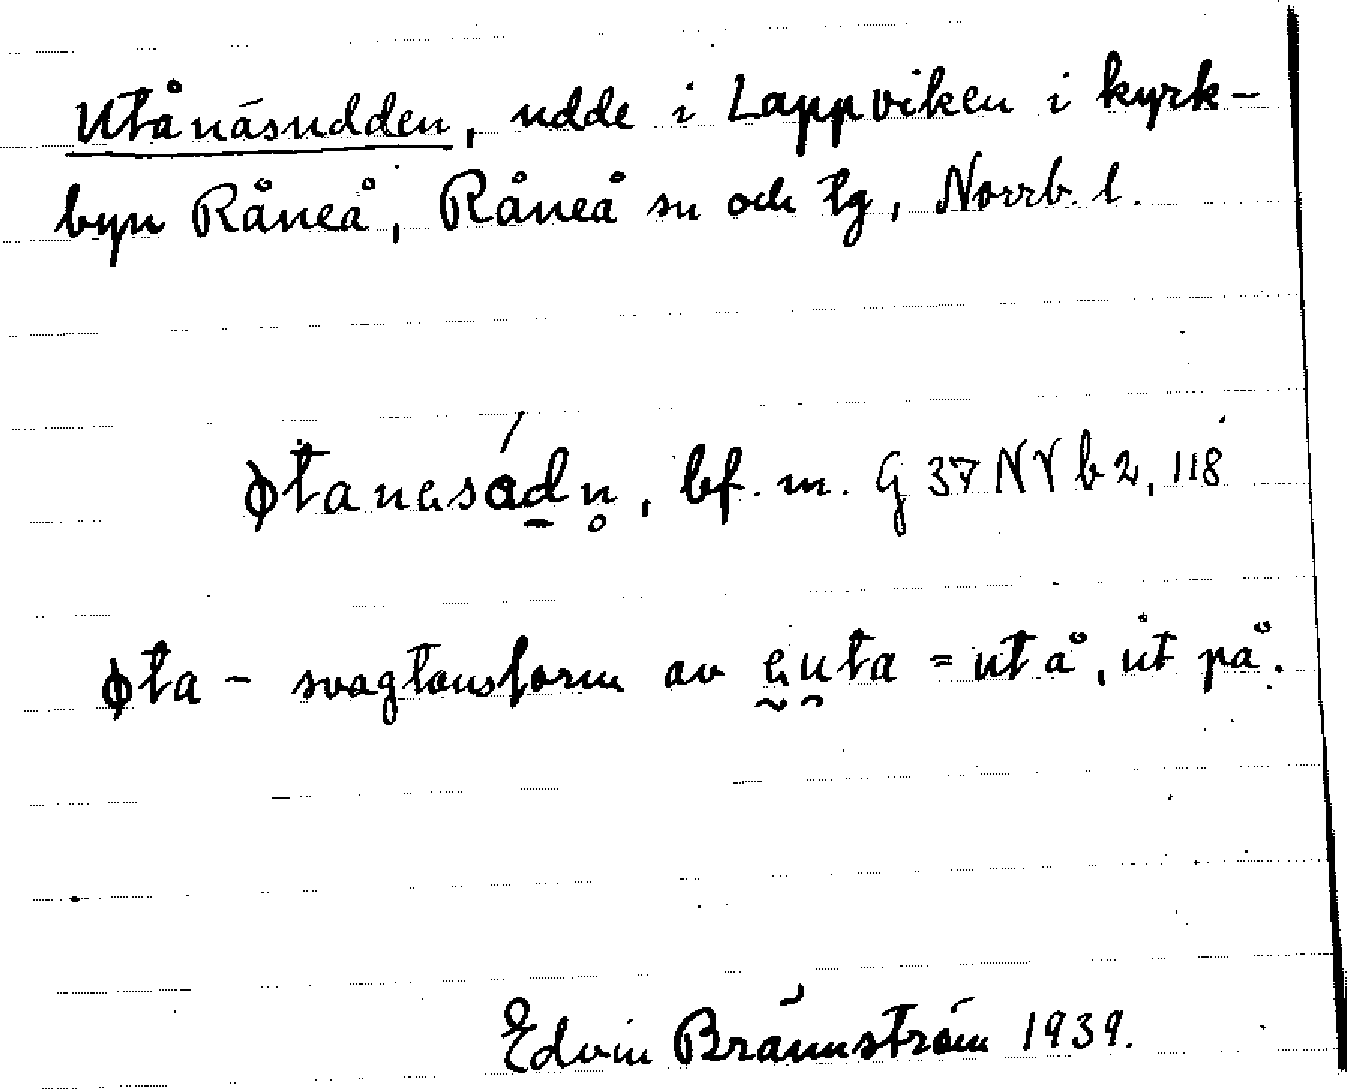 Utånäsudden, udde i Lappviken i kyrk-
byn Råneå, Råneå sn och tg, Norrb. l.
ɸtanasádn̥, bf. m. G 37 NV b 2, 118
ɸta - svagtonsform av ḛṵta = ut å, ut på.
Edvin Brännström 1939.